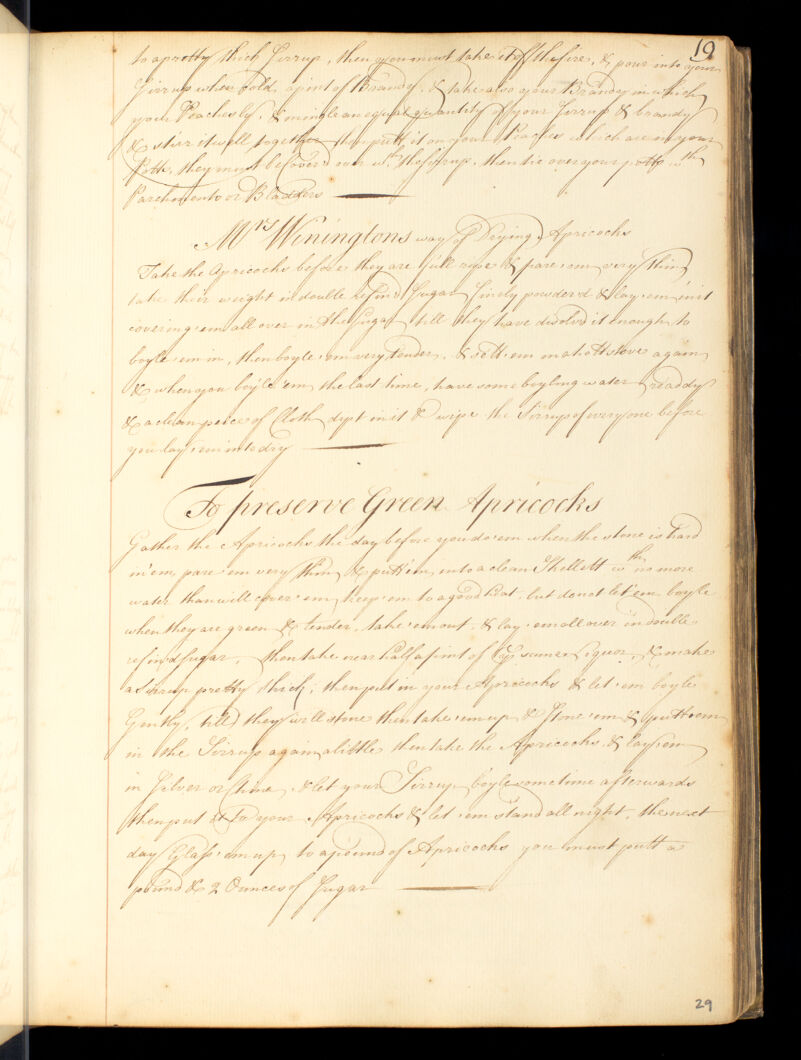 19
to a pretty thick Sirrup, then you must take it off the fire, & pour into your
Sirrup when Cold, a pint of Brandy, & take also your Brandy in which
your Peaches ly, & mingle an equal quantity of your Sirrup & brandy
& stirr it well together then putt it on your Peaches which are in your
Potts, they must be Cover'd over wth the Sirrup. then tie over your potts wth
Parchments or Bladders
Mrs Winingtons way of Drying Apricocks
Take the Apricocks before they are full ripe & pare 'em very thin
take their weight in double refin'd Sugar finely powder'd & lay 'em in it
covering 'em all over in the Sugar till they have disolv'd it enough to
boyle 'em in, then boyle 'em very tender, & sett 'em in a hott stove again
& when you boyle 'em the last time, have some boyling water readdy
& a clean peice of Cloth dipt in it & wipe the Sirrup of every one before
you lay 'em in to dry
To preserve Green Apricocks
Gather the Apricocks the day before you do 'em when the stone is hard
in 'em, pare 'em very thin & putt 'em into a clean Skellett wth no more
water than will cover 'em, keep 'em to a good heat, but do not let 'em boyle
when they are green & tender, take 'em out & lay 'em all over in double
refin'd Sugar, then take near half a pint of the same Liquor, & make
a Sirrup pretty thick; then put in your Apricocks & let 'em boyle
Gently, till they will stone then take 'em up & Stone 'em & putt 'em
in the Sirrup again a little then take the Apricocks & lay 'em
in Silver or China, & let your Sirrup boyle sometime afterwards
then put it To your Apricocks & let 'em stand all night, the next
day Glass 'em up, to a pound of Apricocks you must putt a
pound & 2 Ounces of Sugar
29